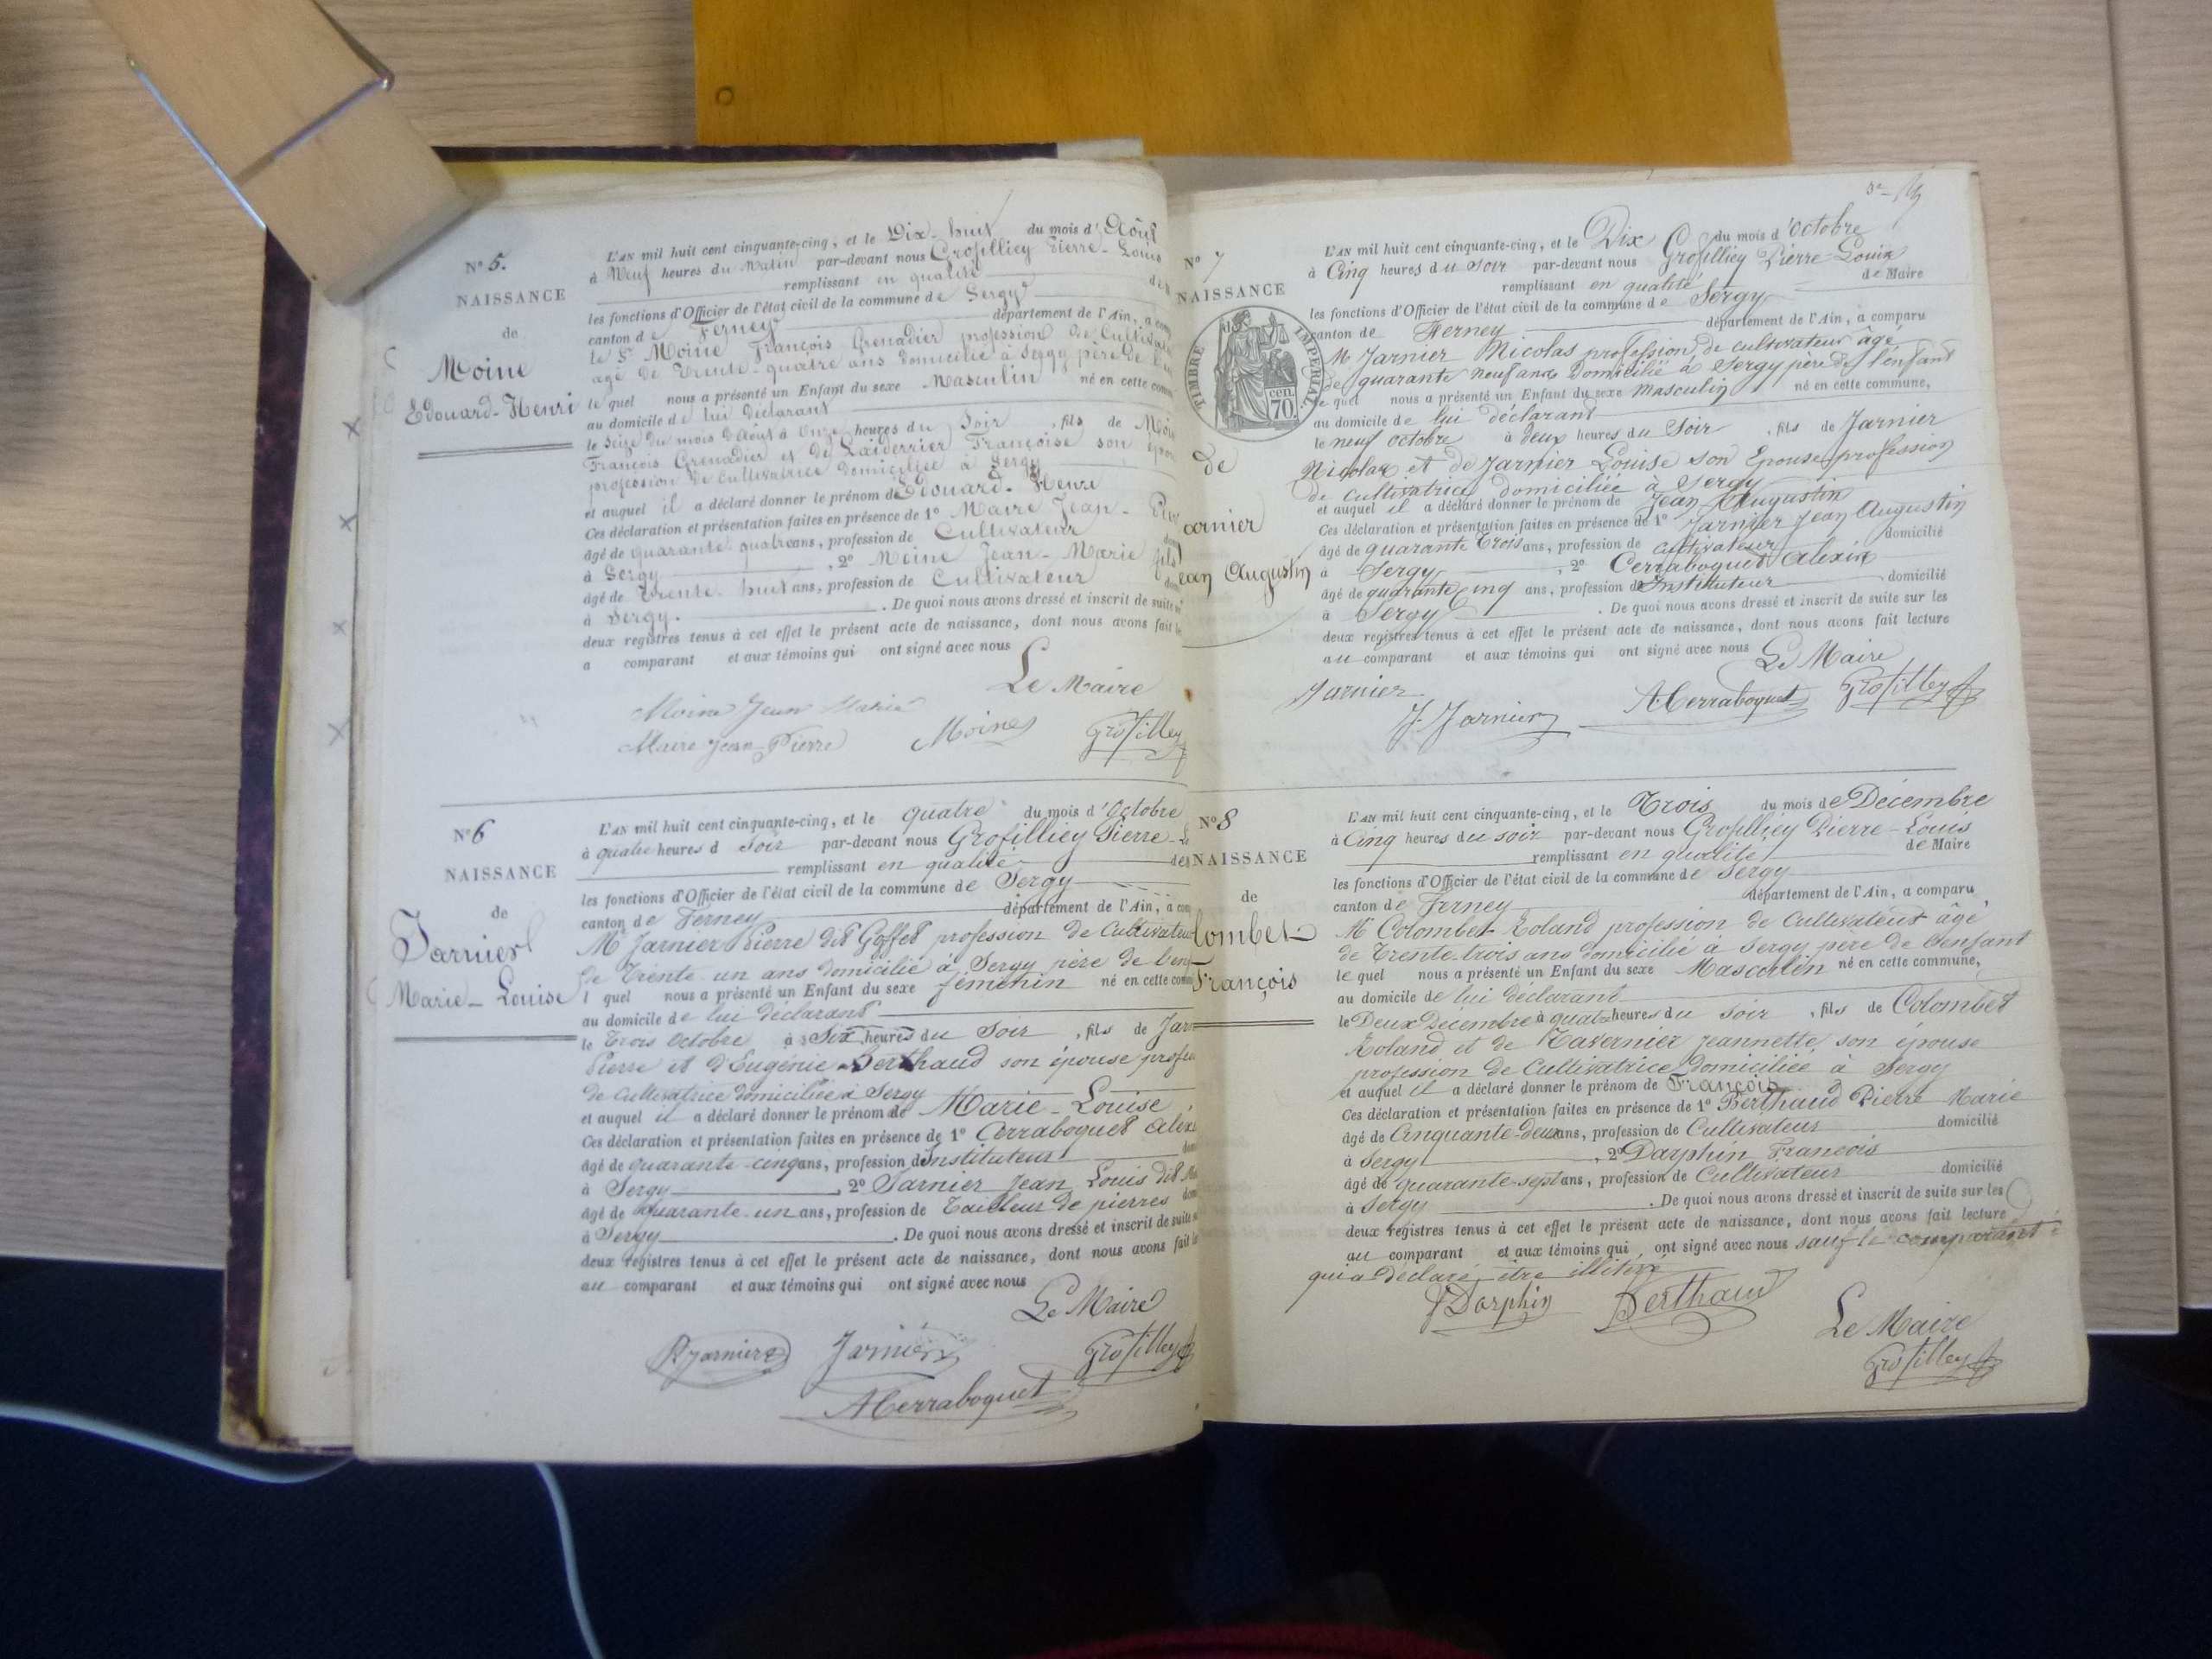 N° 5.
NAISSANCE
de
Moine
Edouard-Henri
L'AN mil huit cent cinquante-cinq, et le Dix-huit du mois d'Août
à Neuf heures du Matin par-devant nous Grosfilliey Pierre-Louis
remplissant en qualité de
les fonctions d'Officier de l'état civil de la commune de Sergy
canton de Ferney département de l'Ain, a
le Sr Moine François Grenadier profession de
agé de Trente-quatre ans domicilié à Sergy père de
le quel nous a présenté un Enfant du sexe Masculin né en cette
au domicile de lui déclarant
le Seize du mois d'Août à Onze heures du Soir, fils de
François Grenadier et de Laverrier Françoise son
profession de cultivatrice domiciliée à Sergy
et auquel il a déclaré donner le prénom de Edouard-Henri
Ces déclaration et présentation faites en présence de 1° Maire Jean-
âgé de quarante quatre ans, profession de Cultivateur
à Sergy, 2° Moine Jean-Marie fils
âgé de Trente-huit ans, profession de Cultivateur
à Sergy. De quoi nous avons dressé et inscrit de suite
deux registres tenus à cet effet le présent acte de naissance, dont nous avons fait
a comparant et aux témoins qui ont signé avec nous
Le Maire
Moine Jean Marie
Maire Jean-Pierre Moine Grosfilley
N° 6
NAISSANCE
de
Jarnier
Marie-Louise
L'AN mil huit cent cinquante-cinq, et le quatre du mois d'Octobre
à quatre heures d Soir par-devant nous Grosfilliey Pierre-
remplissant en qualité de
les fonctions d'Officier de l'état civil de la commune de Sergy
canton de Ferney département de l'Ain, a
Mr Jarnier Pierre dit Goffet profession de
de Trente-un ans domicilié à Sergy père de
l quel nous a présenté un Enfant du sexe féminin né en cette
au domicile de lui déclarant
le Trois Octobre à Six heures du Soir, fils de
Pierre et d'Eugénie Berthaud son épouse
de Cultivatrice domiciliée à Sergy
et auquel il a déclaré donner le prénom de Marie-Louise
Ces déclaration et présentation faites en présence de 1° Cerraboquet
âgé de quarante-cinq ans, profession d'Instituteur
à Sergy, 2° Jarnier Jean Louis dit
âgé de quarante-un ans, profession de Tailleur de pierres
à Sergy. De quoi nous avons dressé et inscrit de suite
deux registres tenus à cet effet le présent acte de naissance, dont nous avons fait
au comparant et aux témoins qui ont signé avec nous
Le Maire
P. Jarnier Jarnier Grosfilley
A Cerraboquet
N° 7
NAISSANCE
TIMBRE IMPERIAL
70 cen.
de
arnier
ean Augustin
L'AN mil huit cent cinquante-cinq, et le Dix du mois d'Octobre
à Cinq heures du Soir par-devant nous Grosfilliey Pierre-Louis
remplissant en qualité de Maire
les fonctions d'Officier de l'état civil de la commune de Sergy
canton de Ferney département de l'Ain, a comparu
Mr Jarnier Nicolas profession de cultivateur âgé
de quarante neuf ans domicilié à Sergy père de l'enfant
le quel nous a présenté un Enfant du sexe Masculin né en cette commune,
au domicile de lui déclarant
le neuf octobre à deux heures du Soir, fils de Jarnier
Nicolas et de Jarnier Louise son Epouse profession
de cultivatrice domiciliée à Sergy
et auquel il a déclaré donner le prénom de Jean Augustin
Ces déclaration et présentation faites en présence de 1° Jarnier Jean Augustin
âgé de quarante Trois ans, profession de cultivateur domicilié
à Sergy, 2° Cerraboquet Alexis
âgé de quarante Cinq ans, profession d'Instituteur domicilié
à Sergy. De quoi nous avons dressé et inscrit de suite sur les
deux registres tenus à cet effet le présent acte de naissance, dont nous avons fait lecture
au comparant et aux témoins qui ont signé avec nous Le Maire
Jarnier J. Jarnier A. Cerraboquet Grosfilley
N° 8
NAISSANCE
de
lombet
François
L'AN mil huit cent cinquante-cinq, et le Trois du mois de Décembre
à Cinq heures du soir par-devant nous Grosfilliey Pierre-Louis
remplissant en qualité de Maire
les fonctions d'Officier de l'état civil de la commune de Sergy
canton de Ferney département de l'Ain, a comparu
Mr Colombet Roland profession de Cultivateur âgé
de Trente-trois ans domicilié à Sergy père de l'enfant
le quel nous a présenté un Enfant du sexe Masculin né en cette commune,
au domicile de lui déclarant
le Deux Décembre à quatre heures du soir, fils de Colombet
Roland et de Tavernier Jeannette son épouse
profession de Cultivatrice domiciliée à Sergy
et auquel il a déclaré donner le prénom de François
Ces déclaration et présentation faites en présence de 1° Berthaud Pierre Marie
âgé de Cinquante-deux ans, profession de Cultivateur domicilié
à Sergy, 2° Darphin François
âgé de quarante-sept ans, profession de Cultivateur domicilié
à Sergy. De quoi nous avons dressé et inscrit de suite sur les
deux registres tenus à cet effet le présent acte de naissance, dont nous avons fait lecture
au comparant et aux témoins qui ont signé avec nous sauf le comparant
qui a déclaré être illitéré
f Darphin Berthaud
Le Maire
Grosfilley